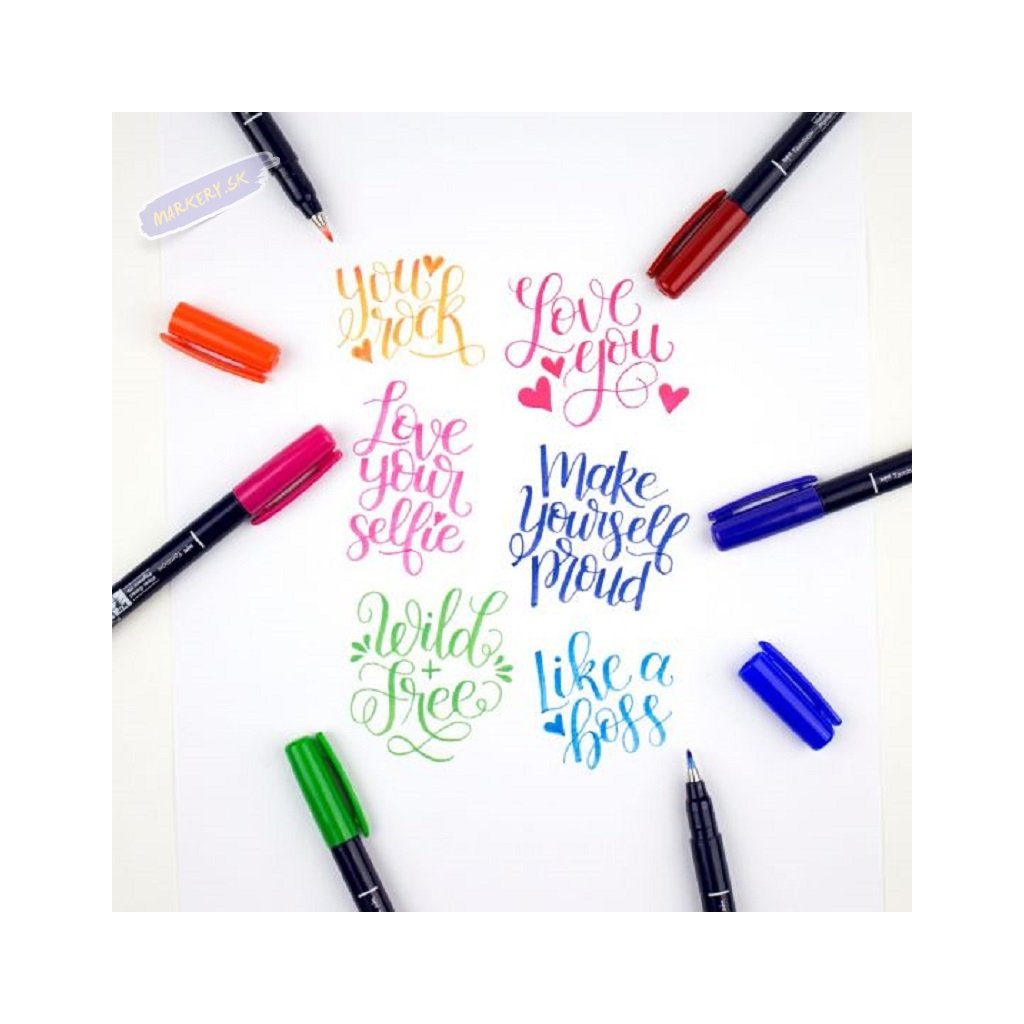 MARKERY.SK
you
rock
Love
you
Love
your
selfie
Make
yourself
proud
Wild
+
free
Like a
boss
Tombow